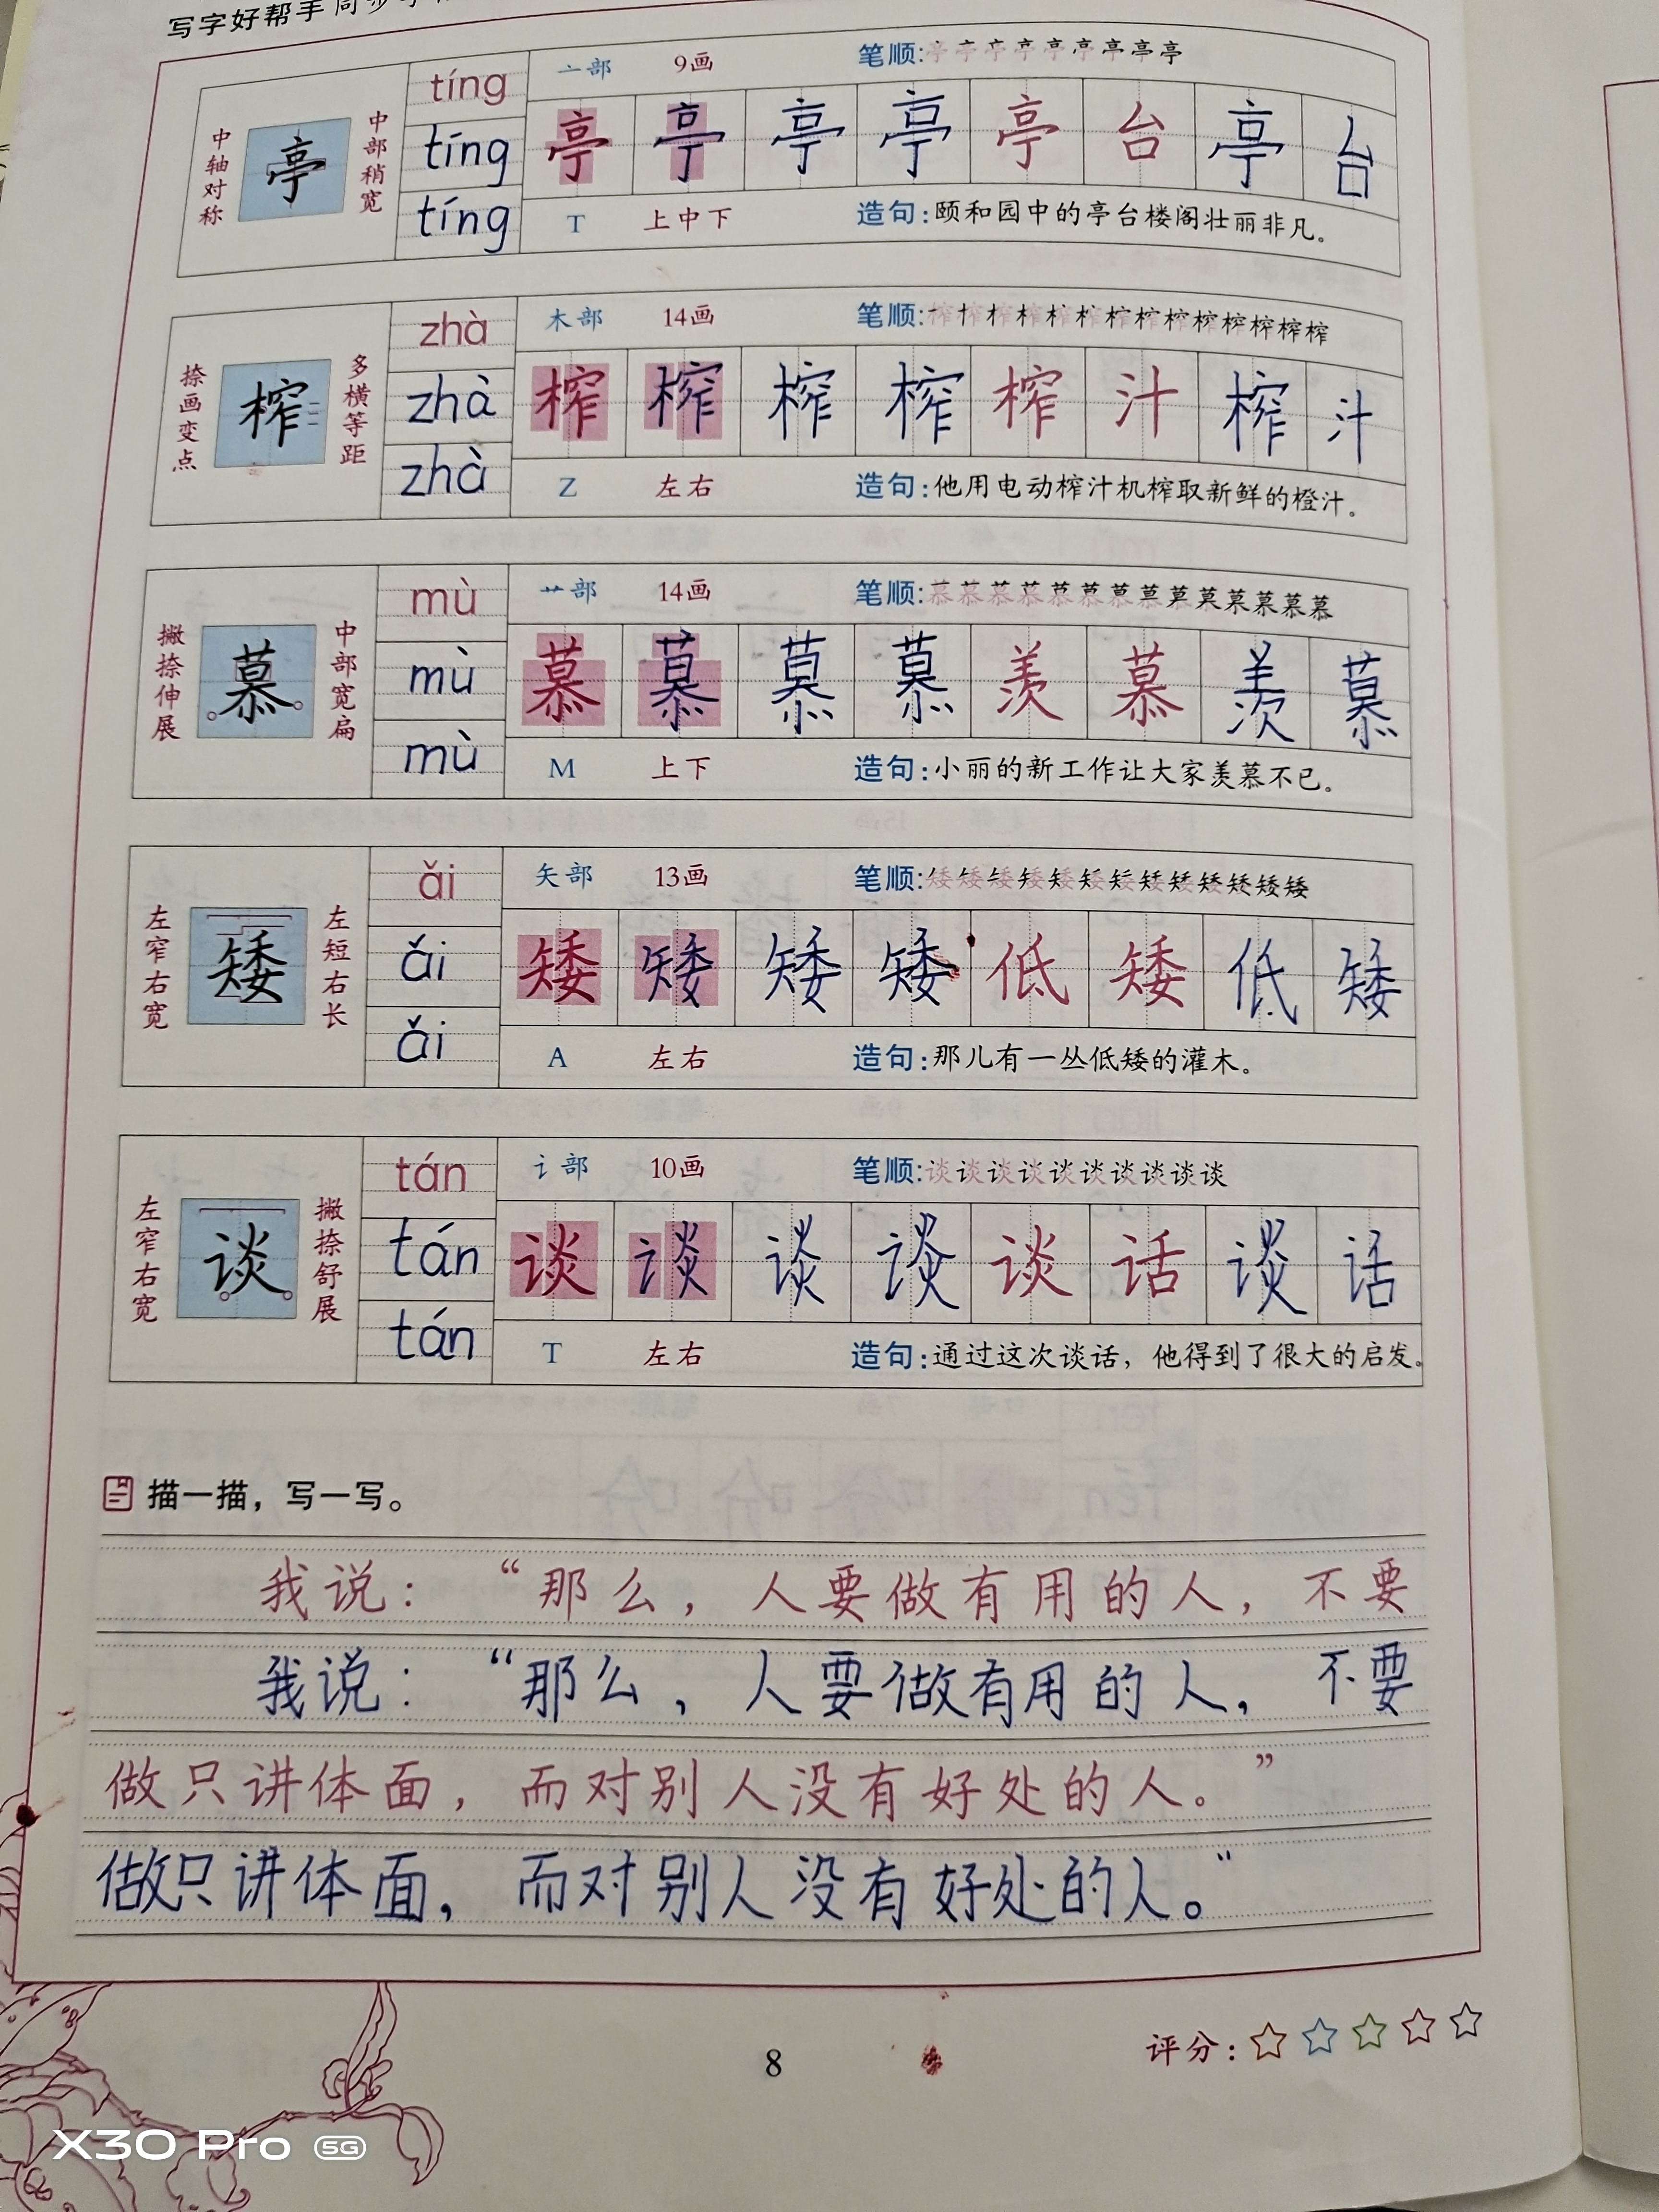 写字好帮手 同步
中轴对称
亭
中部稍宽
tíng
tíng
tíng
亠部 9画 笔顺:亭亭亭亭亭亭亭亭亭
亭 亭 亭 亭 亭 台 亭 台
T 上中下 造句:颐和园中的亭台楼阁壮丽非凡。
捺画变点
榨
多横等距
zhà
zhà
zhà
木部 14画 笔顺:榨榨榨榨榨榨榨榨榨榨榨榨榨榨
榨 榨 榨 榨 榨 汁 榨 汁
Z 左右 造句:他用电动榨汁机榨取新鲜的橙汁。
撇捺伸展
慕
中部宽扁
mù
mù
mù
艹部 14画 笔顺:慕慕慕慕慕慕慕慕慕慕慕慕慕慕
慕 慕 慕 慕 羡 慕 羡 慕
M 上下 造句:小丽的新工作让大家羡慕不已。
左窄右宽
矮
左短右长
ǎi
ǎi
ǎi
矢部 13画 笔顺:矮矮矮矮矮矮矮矮矮矮矮矮矮
矮 矮 矮 矮 低 矮 低 矮
A 左右 造句:那儿有一丛低矮的灌木。
左窄右宽
谈
撇捺舒展
tán
tán
tán
讠部 10画 笔顺:谈谈谈谈谈谈谈谈谈谈
谈 谈 谈 谈 谈 话 谈 话
T 左右 造句:通过这次谈话，他得到了很大的启发。
描一描，写一写。
我说：“那么，人要做有用的人，不要
我说：“那么，人要做有用的人，不要
做只讲体面，而对别人没有好处的人。”
做只讲体面，而对别人没有好处的人。”
评分：
8
X30 Pro 5G